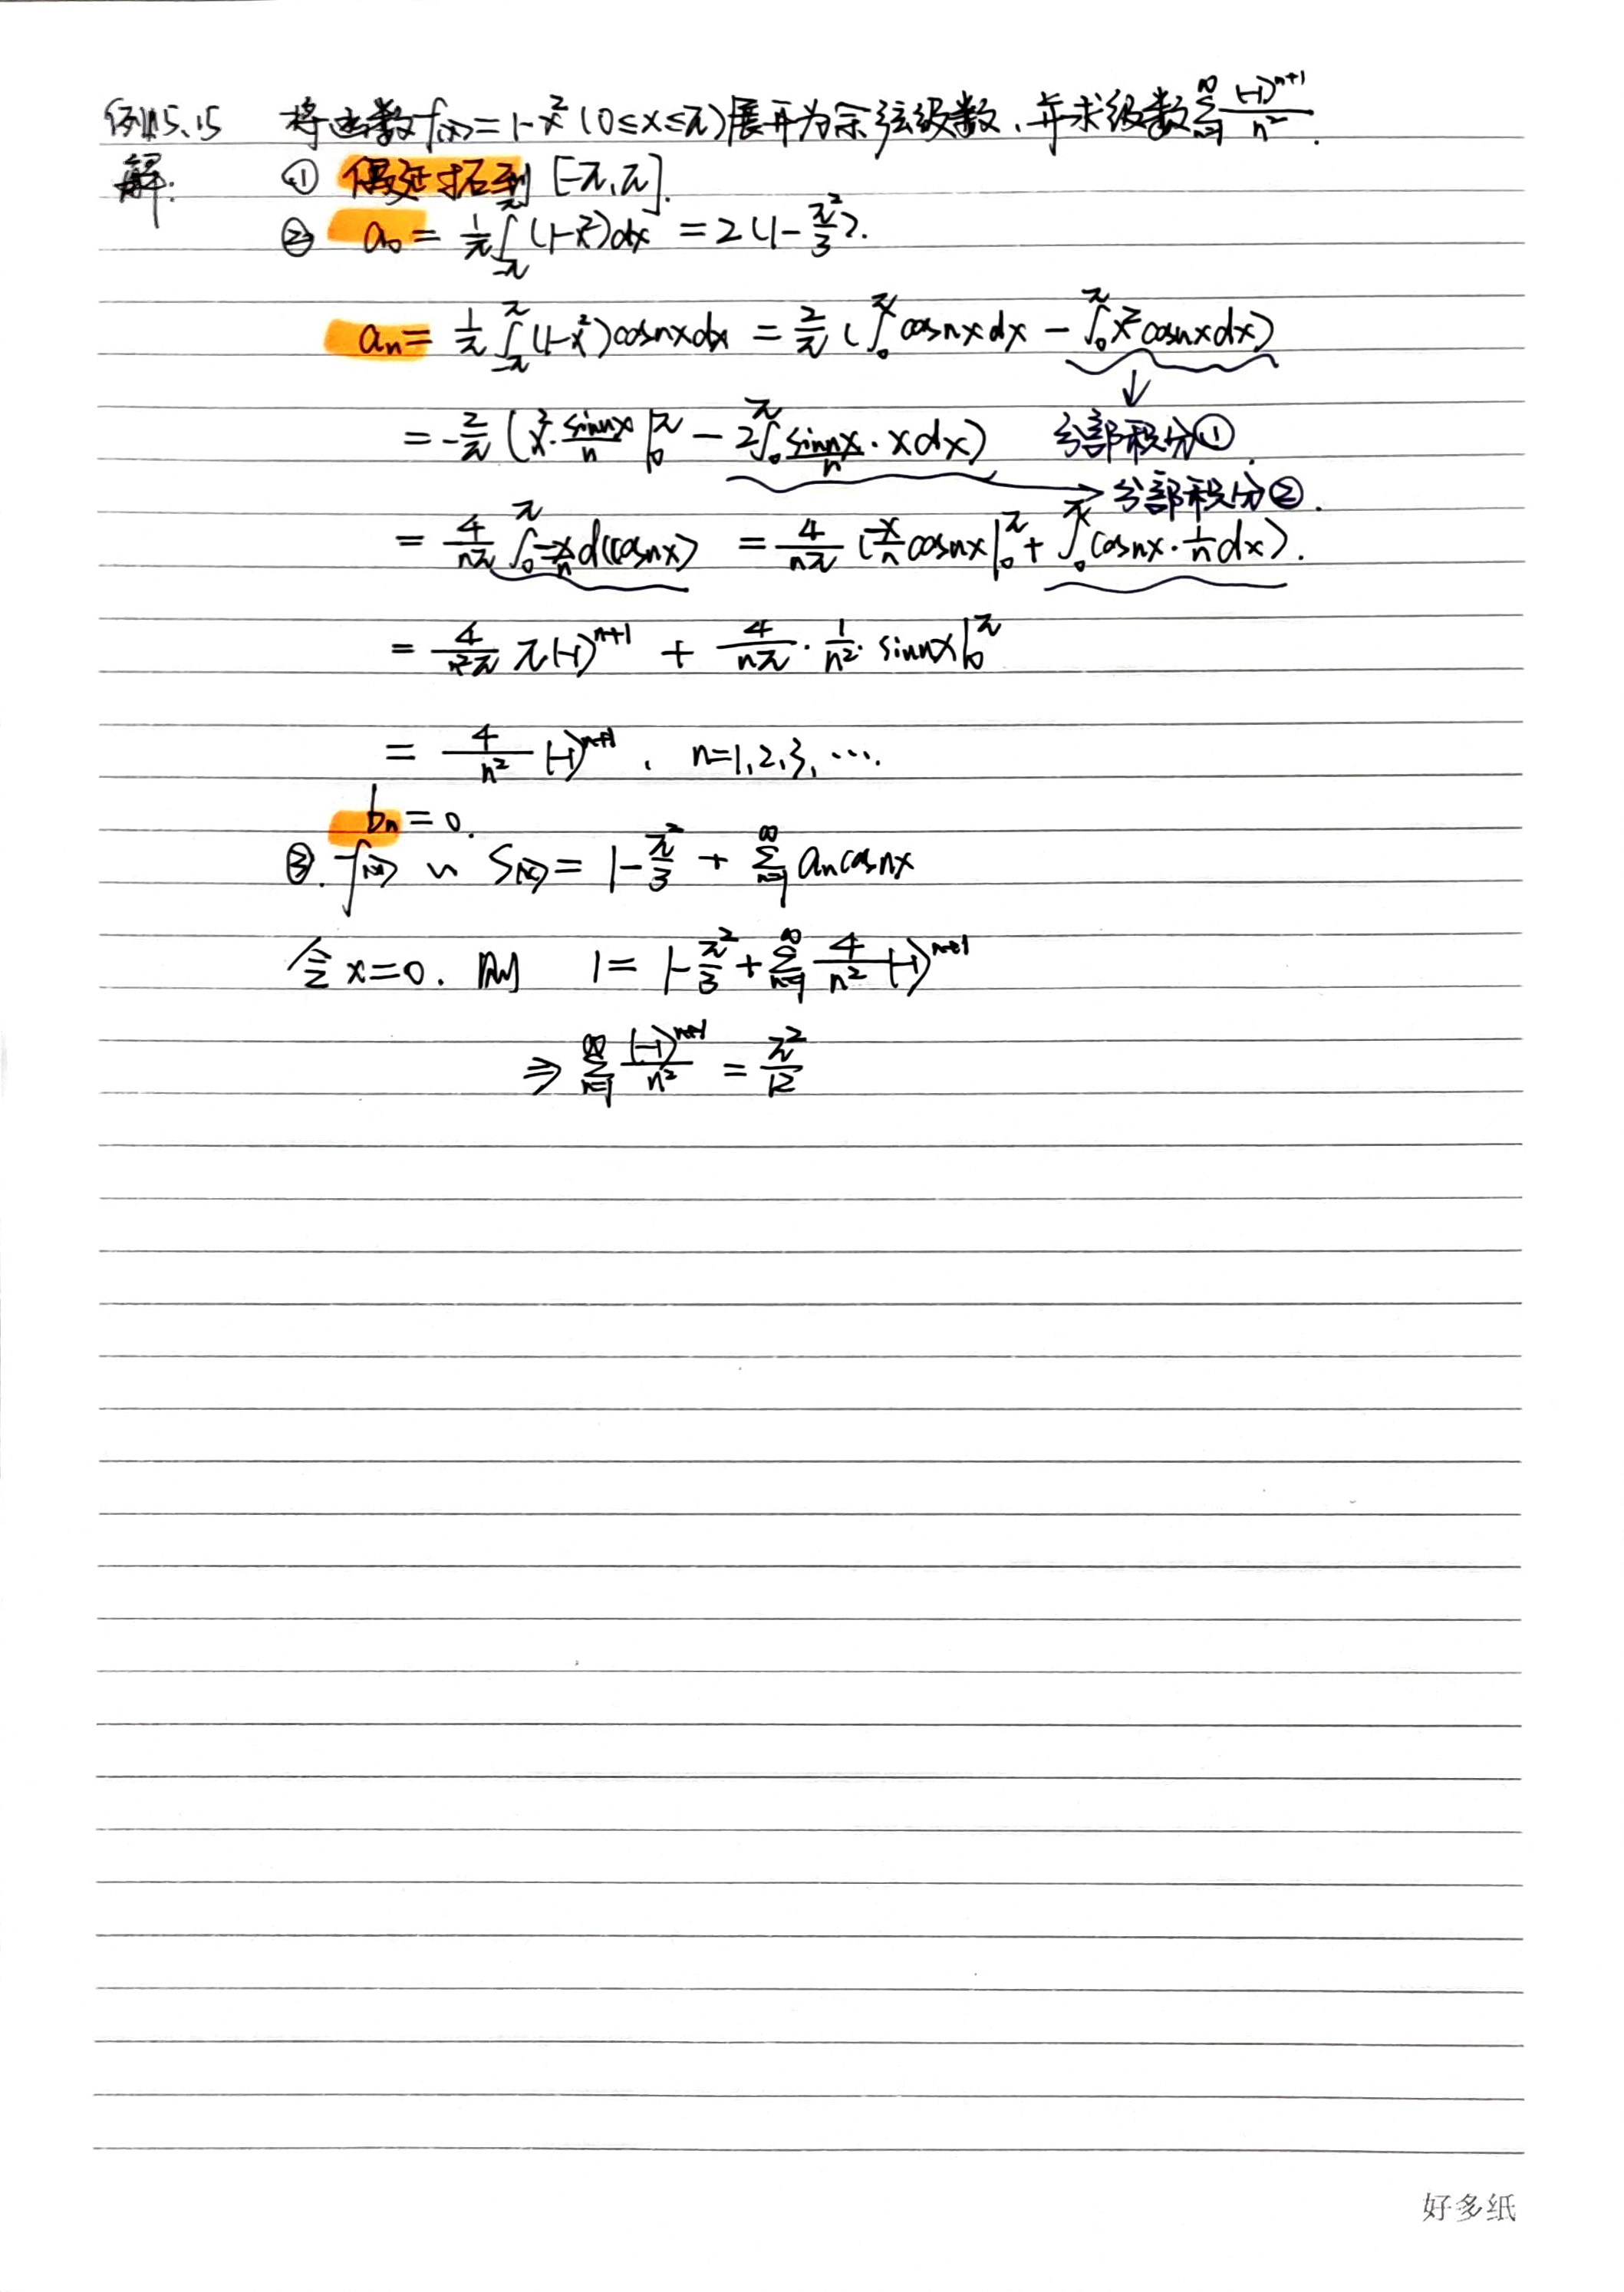 例15.15 将函数f(x)=1-x²(0≤x≤π)展开为余弦级数,并求级数∑_{n=1}^{∞} (-1)^{n+1}/n².
解. ① 偶延拓到 [-π,π].
② a₀ = 1/π ∫_{-π}^{π} (1-x²)dx = 2(1-π²/3).
aₙ = 1/π ∫_{-π}^{π} (1-x²)cosnxdx = 2/π (∫₀^π cosnxdx - ∫₀^π x²cosnxdx)
= -2/π (x²·sinnx/n |₀^π - 2∫₀^π sinnx/n · xdx) 分部积分①.
分部积分②.
= 4/nπ ∫₀^π -x/n d(cosnx) = 4/nπ (-x/n cosnx|₀^π + ∫₀^π cosnx·1/n dx).
= 4/n²π π(-1)^{n+1} + 4/nπ · 1/n² · sinnx|₀^π
= 4/n² (-1)^{n+1}, n=1,2,3,….
bₙ=0.
③. f(x) ~ S(x) = 1-π²/3 + ∑_{n=1}^{∞} aₙcosnx
令x=0. 则 1 = 1-π²/3 + ∑_{n=1}^{∞} 4/n² (-1)^{n+1}
⇒ ∑_{n=1}^{∞} (-1)^{n+1}/n² = π²/12
好多纸